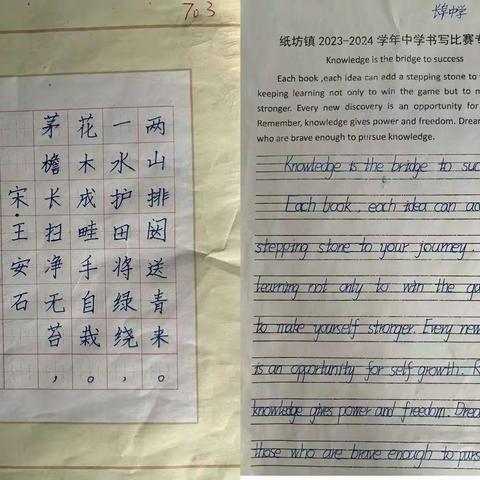 703
宋·王安石
茅檐长扫净无苔，
花木成畦手自栽。
一水护田将绿绕，
两山排闼送青来。
长阜中学
纸坊镇 2023-2024 学年中学书写比赛专
Knowledge is the bridge to success
Each book ,each idea can add a stepping stone to
keeping learning not only to win the game but to m
stronger. Every new discovery is an opportunity for
Remember, knowledge gives power and freedom. Drear
who are brave enough to pursue knowledge.
Knowledge is the bridge to suc
Each book, each idea can ad
stepping stone to your journey.
learning not only to win the ga
to make yourself stronger. Every new
is an opportunity for self growth. R
knowledge gives power and freedom. Drea
those who are brave enough to purs